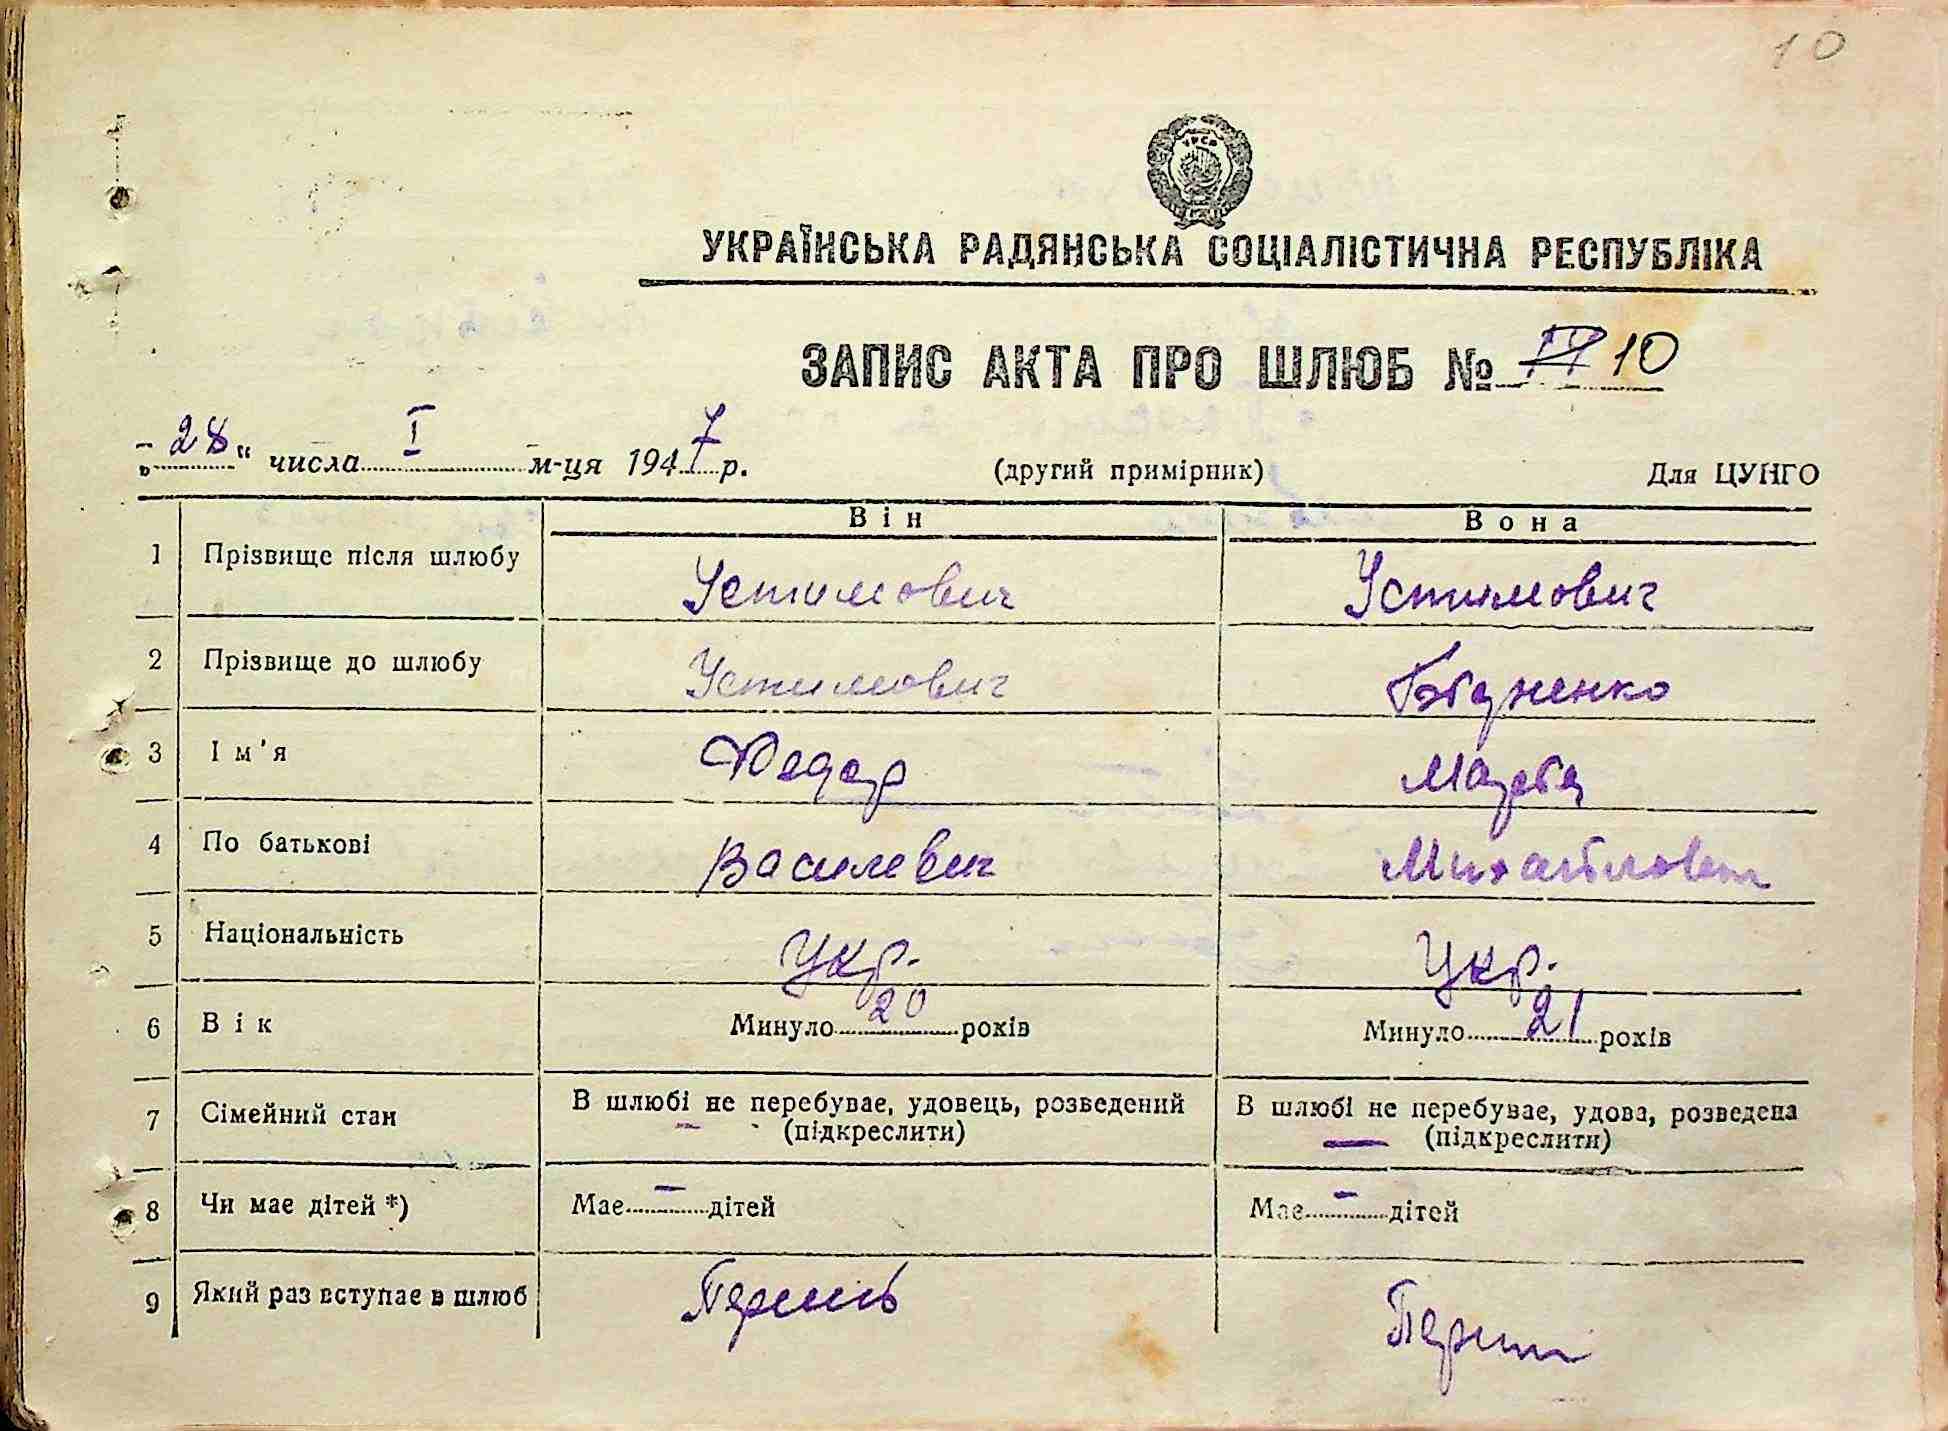 10
УРСР
УКРАЇНСЬКА РАДЯНСЬКА СОЦІАЛІСТИЧНА РЕСПУБЛІКА
ЗАПИС АКТА ПРО ШЛЮБ № 10
„28“ числа I м-ця 1947 р. (другий примірник) Для ЦУНГО
Він Вона
1 Прізвище після шлюбу Устимович Устимович
2 Прізвище до шлюбу Устимович
3 Ім'я Федор
4 По батькові Василевич
5 Національність Укр. Укр.
6 Вік Минуло 20 років Минуло 21 років
7 Сімейний стан В шлюбі не перебуває, удовець, розведений (підкреслити) В шлюбі не перебуває, удова, розведена (підкреслити)
8 Чи має дітей *) Має – дітей Має – дітей
9 Який раз вступає в шлюб